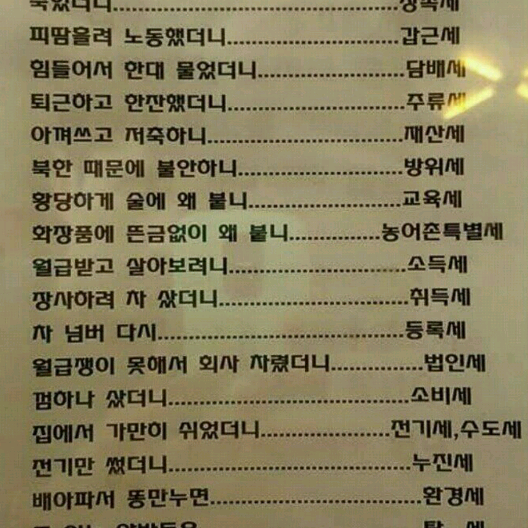 죽었더니........................................상속세
피땀흘려 노동했더니........................갑근세
힘들어서 한대 물었더니....................담배세
퇴근하고 한잔했더니........................주류세
아껴쓰고 저축하니...........................재산세
북한 때문에 불안하니.......................방위세
황당하게 술에 왜 붙니.....................교육세
화장품에 뜬금없이 왜 붙니...............농어촌특별세
월급받고 살아보려니........................소득세
장사하려 차 샀더니..........................취득세
차 넘버 다시..................................등록세
월급쟁이 못해서 회사 차렸더니............법인세
껌하나 샀더니................................소비세
집에서 가만히 쉬었더니...................전기세,수도세
전기만 썼더니................................누진세
배아파서 똥만누면...........................환경세